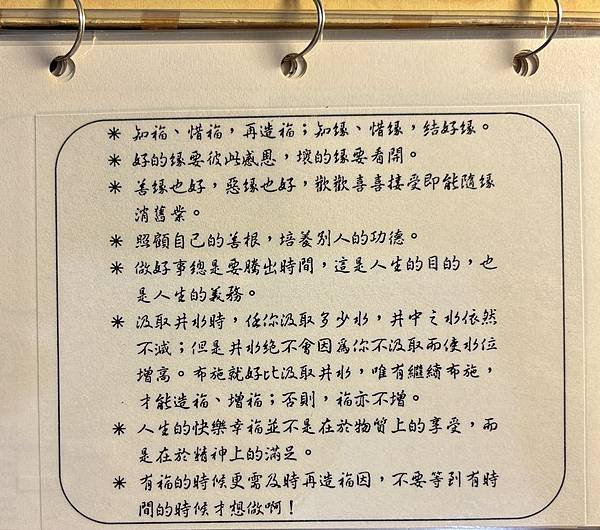 * 知福、惜福，再造福；知緣、惜緣，結好緣。
* 好的緣要彼此感恩，壞的緣要看開。
* 善緣也好，惡緣也好，歡歡喜喜接受即能隨緣
消舊業。
* 照顧自己的善根，培養別人的功德。
* 做好事總是要騰出時間，這是人生的目的，也
是人生的義務。
* 汲取井水時，任你汲取多少水，井中之水依然
不減；但是井水絕不會因為你不汲取而使水位
增高。布施就好比汲取井水，唯有繼續布施，
才能造福、增福；否則，福亦不增。
* 人生的快樂幸福並不是在於物質上的享受，而
是在於精神上的滿足。
* 有福的時候更需及時再造福因，不要等到有時
間的時候才想做啊！